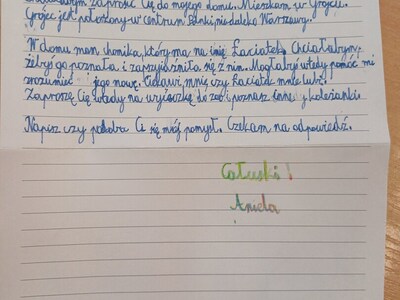 zaprosić Cię do mojego domu. Mieszkam w Grójcu.
Grójec jest położony w centrum Polski niedaleko Warszawy.
W domu mam chomika, który ma na imię Łaciatek. Chciałabym,
żebyś go poznała i zaprzyjaźniła się z nim. Mogłabyś wtedy pomóc mi
zrozumieć jego mowę. Ciekawi mnie czy Łaciatek mnie lubi.
Zaproszę Cię wtedy na wycieczkę do zoo i poznasz inne koleżanki.
Napisz czy podoba Ci się mój pomysł. Czekam na odpowiedź.
Całuski!
Aniela